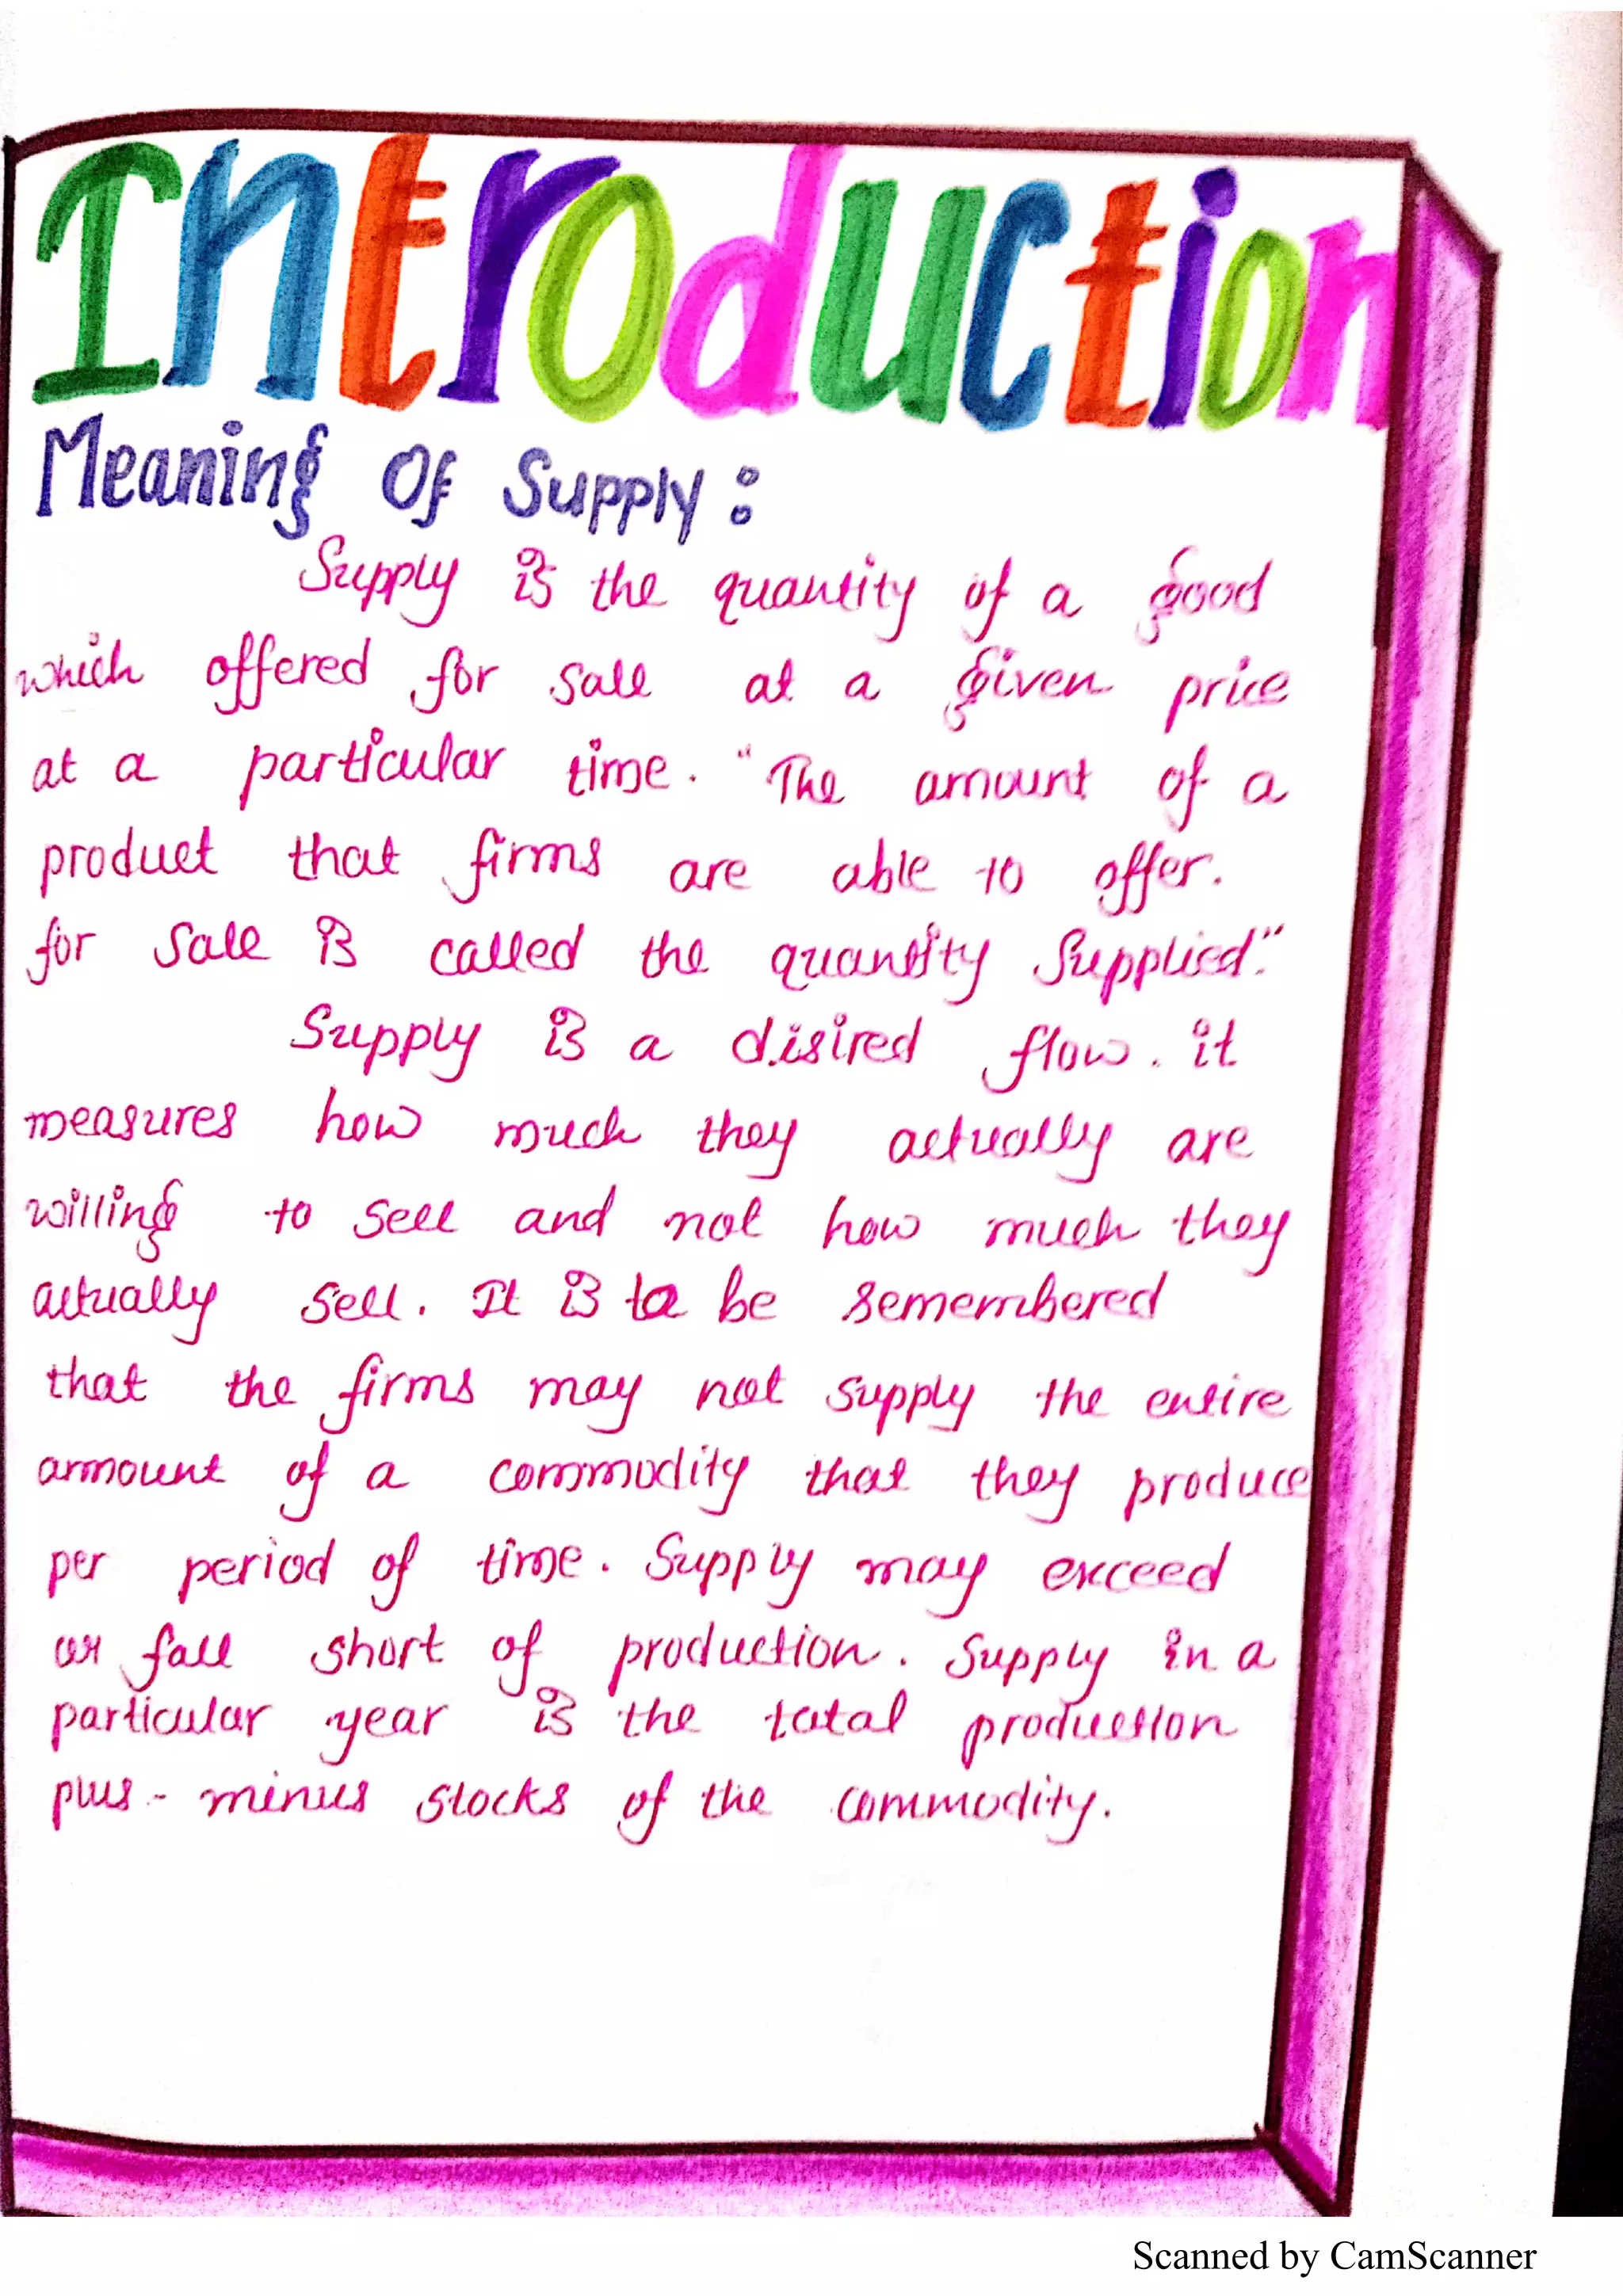 Introduction
Meaning Of Supply :
Supply is the quantity of a good
which offered for sale at a given price
at a particular time. "The amount of a
product that firms are able to offer.
for sale is called the quantity Supplied."
Supply is a disired flow. it
measures how much they actually are
willing to sell and not how much they
actually sell. It is to be remembered
that the firms may not supply the entire
amount of a commodity that they produce
per period of time. Supply may exceed
or fall short of production. Supply in a
particular year is the total production
plus - minus stocks of the commodity.
Scanned by CamScanner